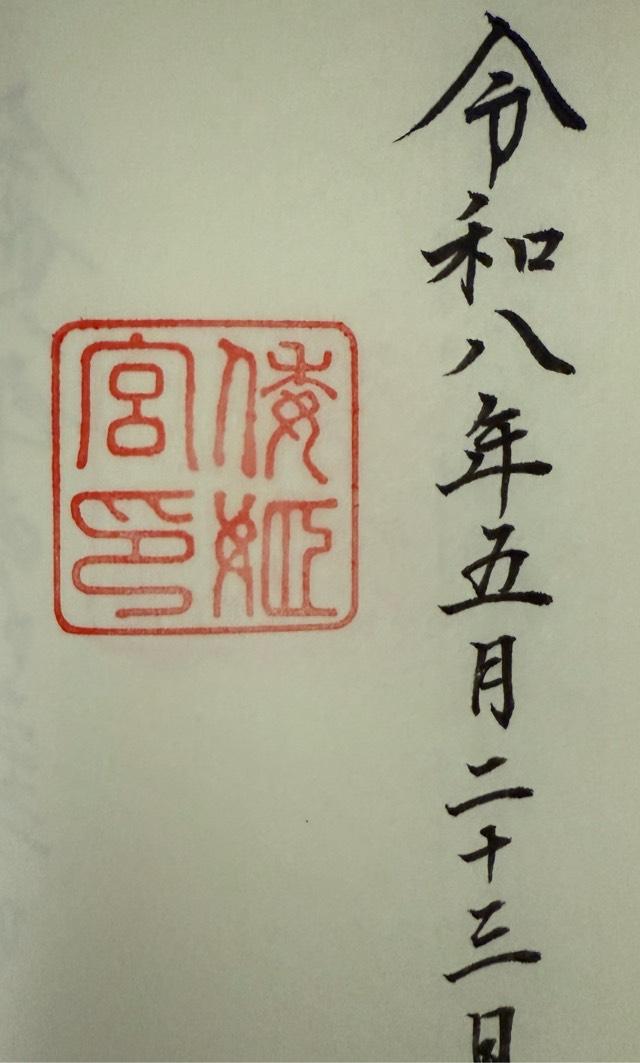 令和八年五月二十三日
倭姫
宮印